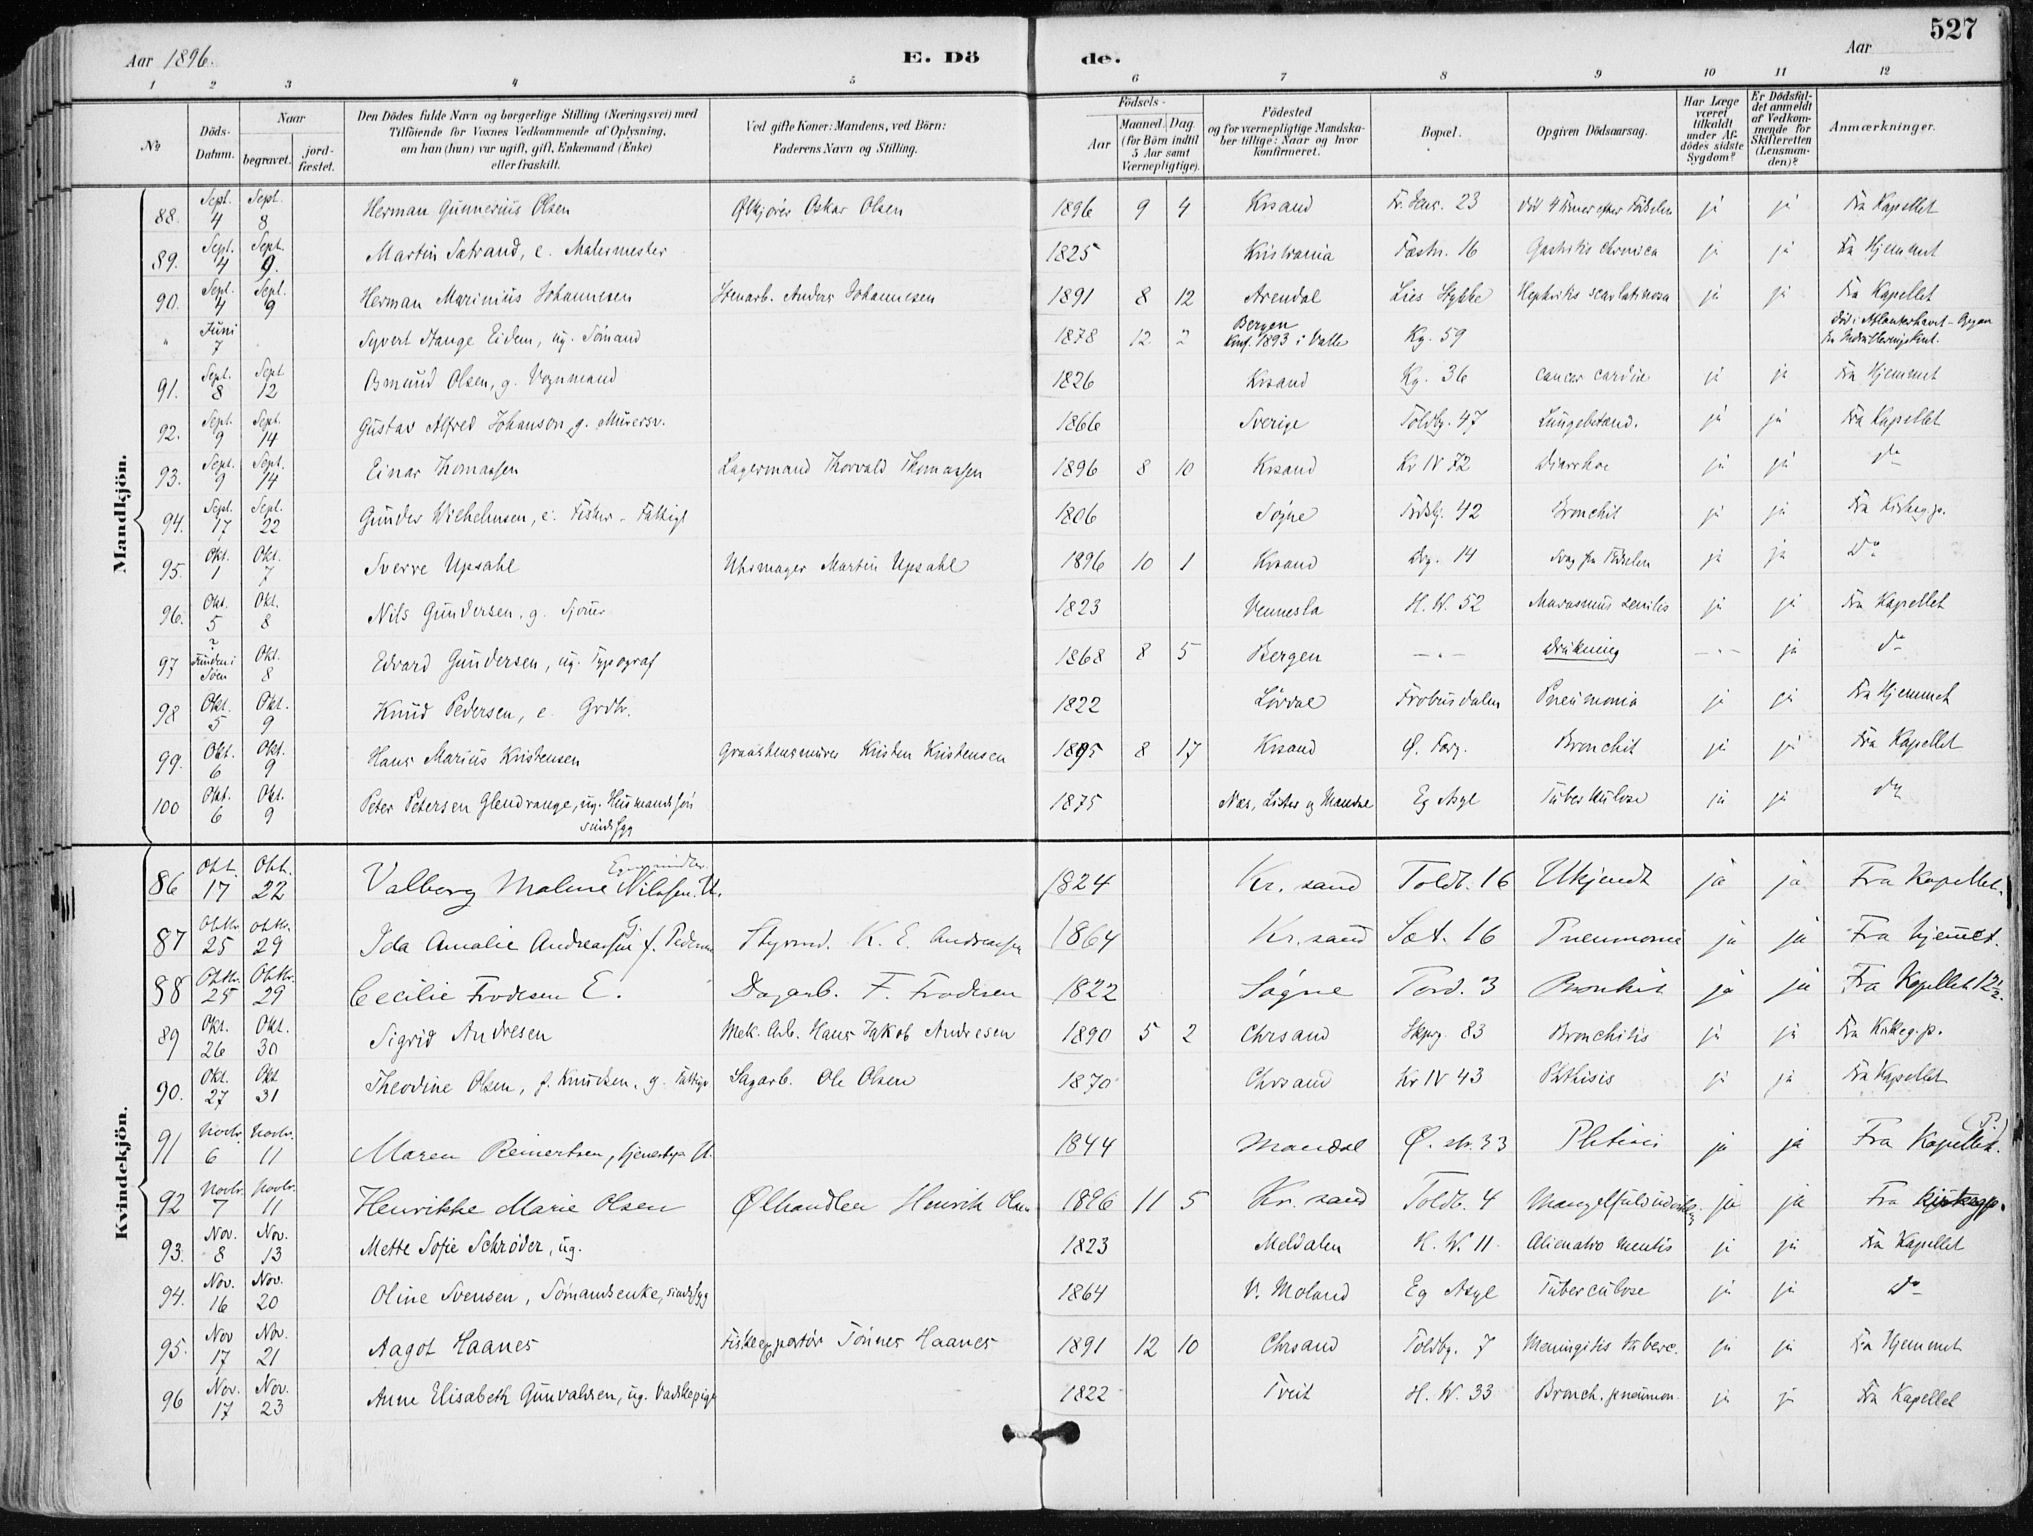 527
Aar 1896. E. Dö de. Aar
1 2 3 4 5 6 7 8 9 10 11 12
No
Döds-Datum.
Naar
begravet.
jord-fæstet.
Den Dödes fulde Navn og borgerlige Stilling (Næringsvei) med
Tilföiende for Voxnes Vedkommende af Oplysning,
om han (hun) var ugift, gift, Enkemand (Enke)
eller fraskilt.
Ved gifte Koner: Mandens, ved Börn:
Faderens Navn og Stilling.
Födsels-
Aar
Maaned. Dag.
(for Börn indtil
5 Aar samt
Værnepligtige).
Födested
og for værnepligtige Mandska-
ber tillige: Naar og hvor
konfirmeret.
Bopæl.
Opgiven Dödsaarsag.
Har Læge
været
tilkaldt
under Af-
dödes sidste
Sygdom?
Er Dödsfal-
det anmeldt
af Vedkom-
mende for
Skifteretten
(Lensman-
den)?
Anmærkninger.
Mandkjön.
88. Sept. 4 Sept. 8 Herman Gunnerius Olsen Ølkjører Oskar Olsen 1896 9 4 Krsand 23 Død 4 Timer efter Fødselen ja ja Fra Kapellet
89. Sept. 4 Sept. 9. Martin Satrand, e. Malermester 1825 Kristiania Fæstn. 16 Gastritis chronica ja ja Fra Hjemmet
90. Sept. 4 Sept. 9 Herman Marinius Johannesen Stenarb. Anders Johannesen 1891 8 12 Arendal Lies Stykke Nephritis scarlatinosa ja ja Fra Kapellet
" Juni 7 Syvert Stange Eidem, ug. Sømand 1878 12 2 Bergen Konf. 1893 i Valle Kg. 59 Død i Atlanterhavet
91. Sept. 8 Sept. 12 Osmund Olsen, g. Vognmand 1826 Krsand Kg. 36 cancer cardiæ ja ja Fra Hjemmet
92. Sept. 9 Sept. 14 Gustav Alfred Johanson, g. Murersv. 1866 Sverige Toldbg. 47 Lungebetænd. ja ja Fra Kapellet
93. Sept. 9 Sept. 14 Einar Thomassen Lagermand Thorvald Thomassen 1896 8 10 Krsand Kr IV 72 Diarrhoe ja ja do
94. Sept. 17 Sept. 22 Gunder Wilhelmsen, e. Fisker - Fattigl 1806 Søgne 42 Bronchit ja ja Fra Kirkeg.p.
95. Okt. 1 Okt. 7 Sverre Upsahl Uhrmager Martin Upsahl 1896 10 1 Krsand Drg. 14 Svag fra Fødselen ja ja Do
96. Okt. 5 Okt. 8 Nils Gundersen, g. 1823 Vennesla H. W. 52 Marasmus senilis ja ja Fra Kapellet
97 ? Funden i Søen Okt. 8 Edvard Gundersen, ug. Typograf 1868 8 5 Bergen — . — Drukning — . — ja do
98 Okt. 5 Okt. 9 Knud Pedersen, e. Grdbr. 1822 Frobusdalen Pneumonia ja ja Fra Hjemmet
99. Okt. 6 Okt. 9 Hans Marius Kristensen Graastensmurer Kristen Kristensen 1895 8 17 Krsand Ø. Bronchit ja ja Fra Kapellet
100 Okt. 6 Okt. 9 Peter Petersen Glendrange, ug. Husmandssøn sindssyg 1875 Næs, Lister og Mandal Eg Asyl Tuberkulose ja ja do
Kvindekjön.
86 Okt. 17 Okt. 22 Valborg Maline Nilssen. U. 1824 Kr. sand Toldb. 16 Ukjendt ja ja Fra Kapellet.
87 Oktbr. 25 Oktbr. 29 Ida Amalie Andreassen G. f. Pedersen Styrmd. K. E. Andreassen 1864 Kr. sand Sæt. 16 Pneumonia ja ja Fra hjemet.
88 Oktbr. 25 Oktbr. 29 Cecilie Frodesen E. Dagarb. F. Frodesen 1822 Søgne Tord. 3 Bronkit ja ja Fra Kapellet 12½.
89 Okt. 26 Okt. 30 Sigrid Andresen Mek. Arb. Hans Jakob Andresen 1890 5 2 Chrsand Skprg. 83 Bronchitis ja ja Fra Kirkeg.p.
90. Okt. 27 Okt 31 Theodine Olsen, f. Knudsen, g. Fattigv Sagarb. Ole Olsen 1870 Chrsand Kr IV 43 Phthisis ja ja Fra Kapellet
91 Novbr. 6 Novbr. 11 Maren Reinertsen, tjenestpge U. 1844 Mandal Ø. str. 33 ja ja Fra Kapellet.
92 Novbr. 7 Novbr. 11 Henrikke Marie Olsen Ølhandler Henrik Olsen 1896 11 5 Kr. sand Toldb. 4 Mangelfuld udvikl. ja ja Fra Kirkegp.
93. Nov. 8 Nov. 13 Mette Sofie Schrøder, ug. 1823 Meldalen K. W. 11 Alienatio mentis ja ja Fra Kapellet
94. Nov. 16 Nov. 20 Oline Svensen, Sømandsenke, sindssyg 1864 V. Moland Eg Asyl Tuberculose ja ja Do
95. Nov 17 Nov. 21 Aagot Haanes Fiskeexportør Tønnes Haanes 1891 12 10 Chrsand Toldbg. 7 Meningitis tuberc. ja ja Fra Hjemmet
96 Nov. 17 Nov. 23 Anne Elisabeth Gunvaldsen, ug. Vadskepige 1822 Tveit H. W. 33 Bronch. pneumon. ja ja Fra Kapellet